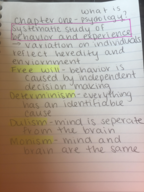 what is
Chapter one - psycology?
systematic study of
behavior and experience
→ variation on individuals
reflect heredity and
enviornment
Free will - behavior is
caused by independent
decision making
Determinism - everything
has an identifiable
cause
Dulism - mind is seperate
from the brain
Monoism - mind and
brain are the same